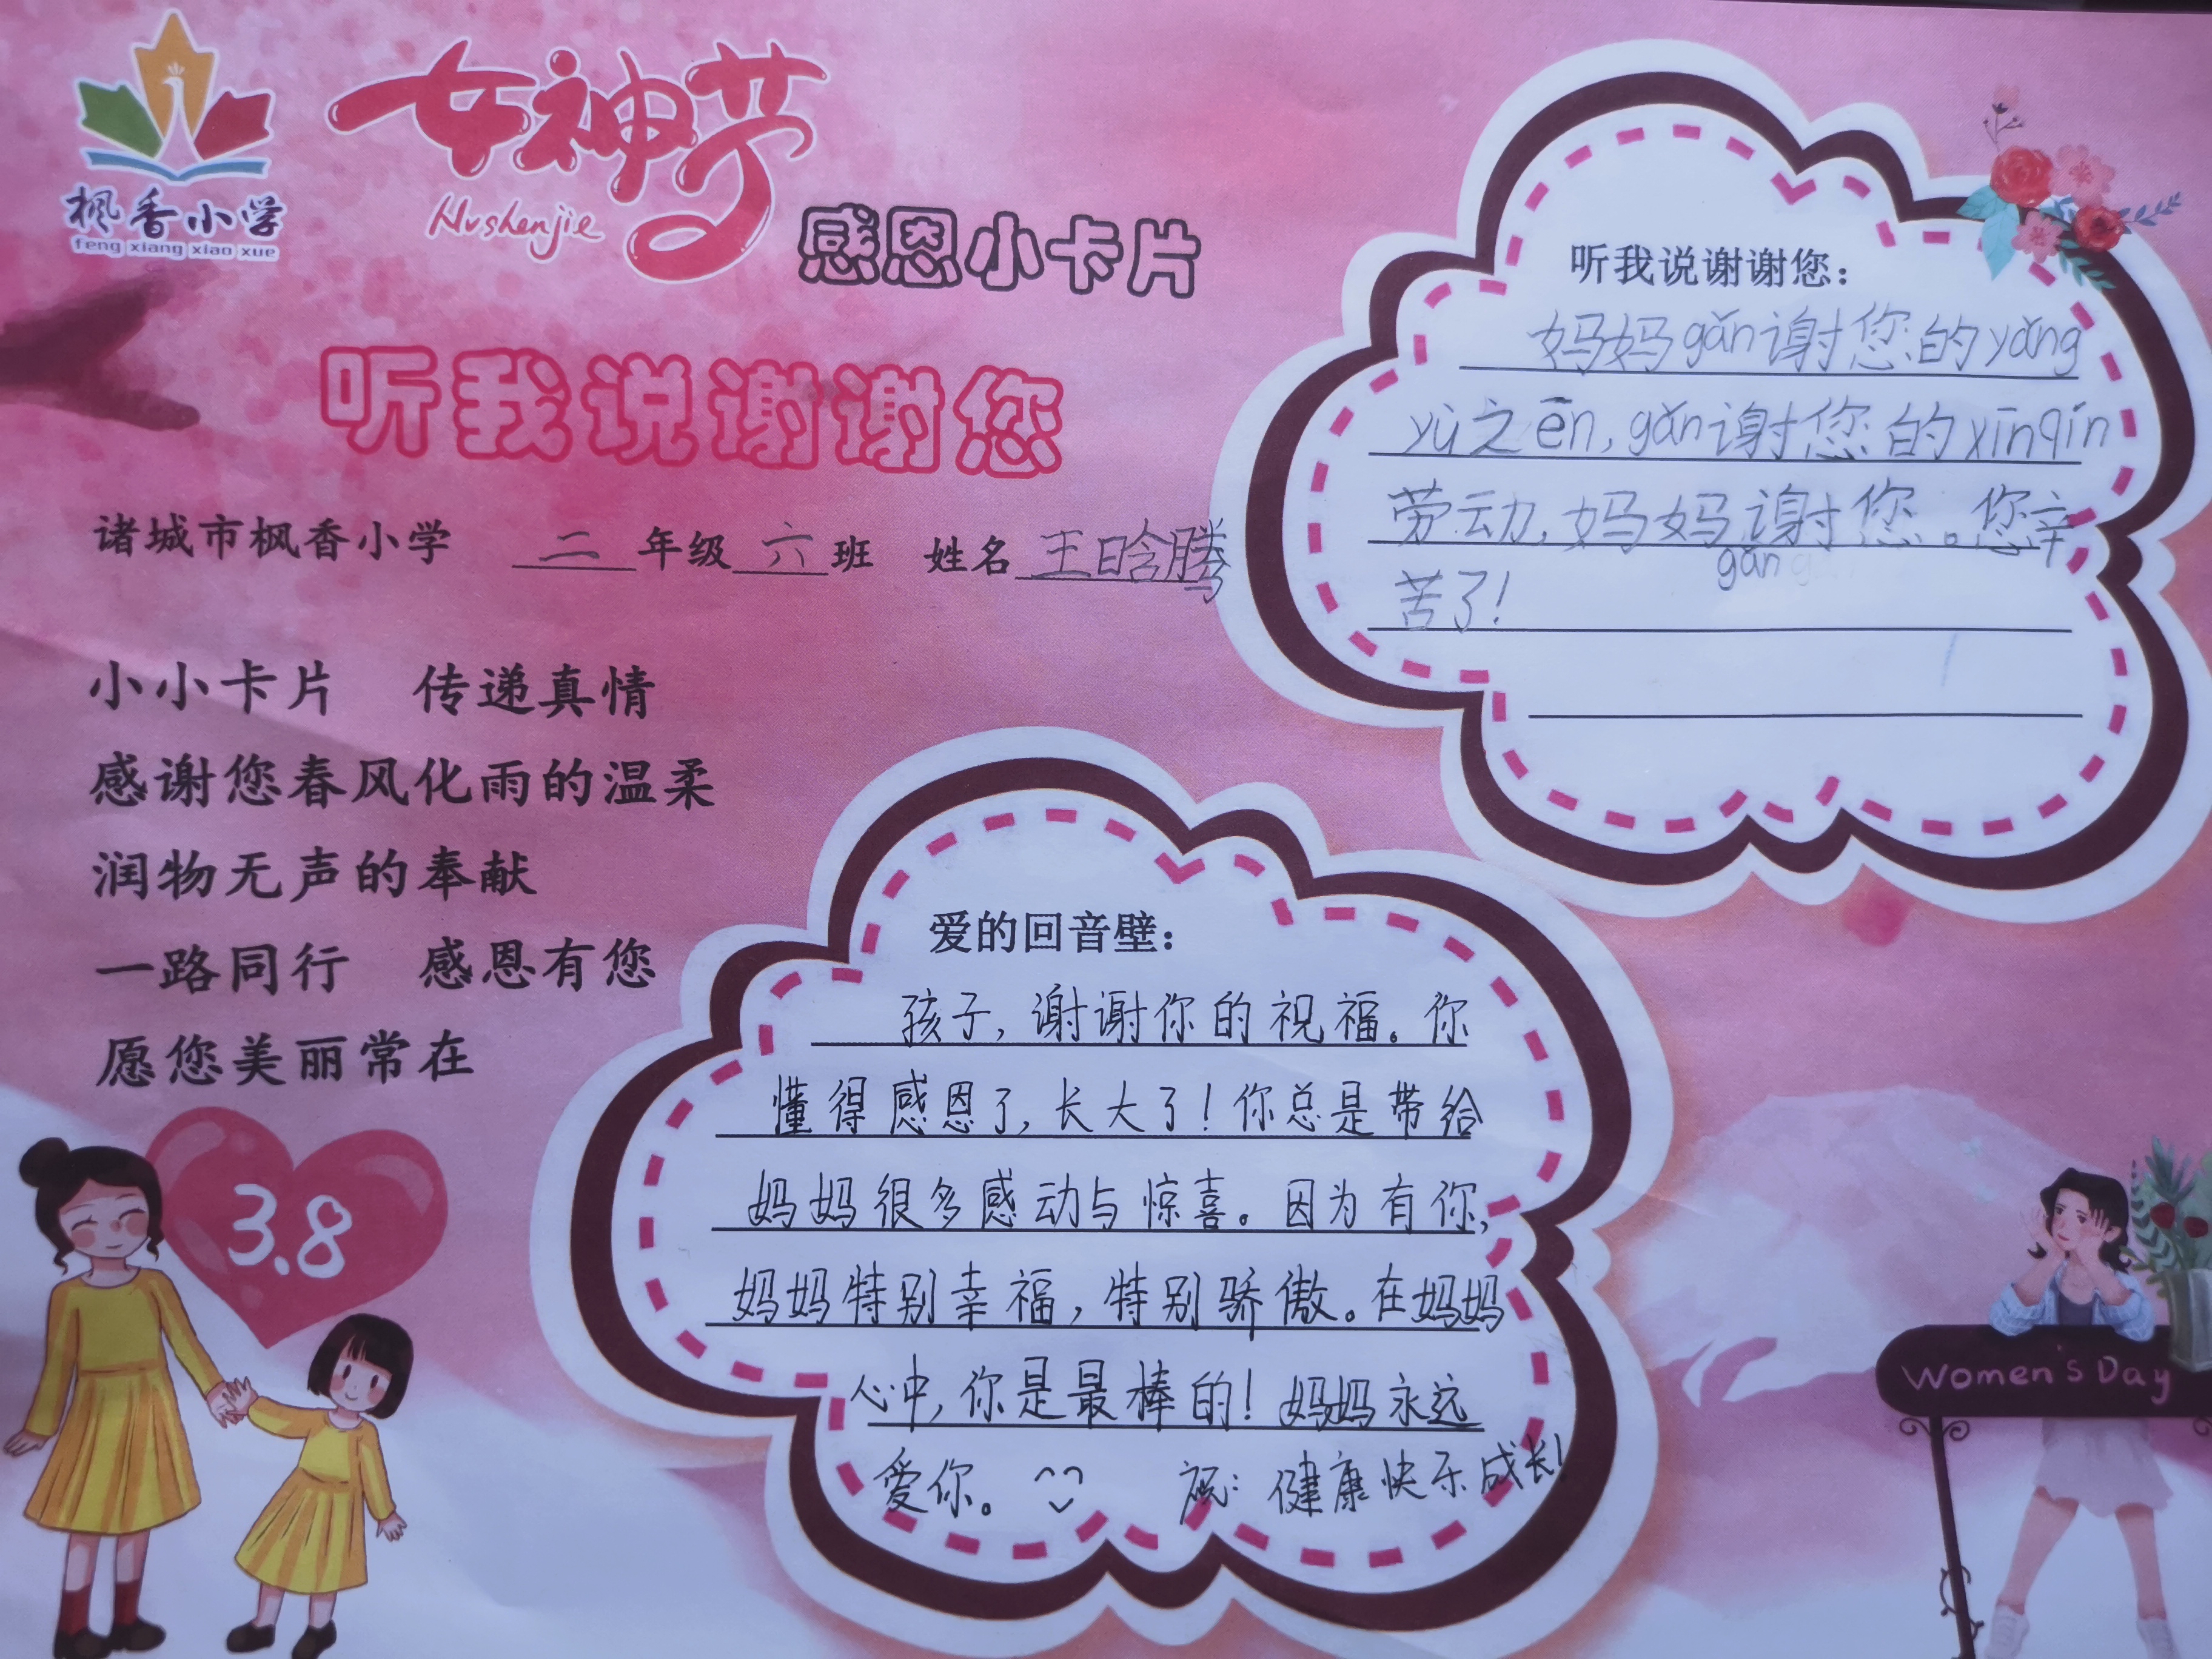 枫香小学
feng xiang xiao xue
女神节
Nvshenjie
感恩小卡片
听我说谢谢您
诸城市枫香小学 二 年级 六 班 姓名 王晗腾
小小卡片 传递真情
感谢您春风化雨的温柔
润物无声的奉献
一路同行 感恩有您
愿您美丽常在
3.8
听我说谢谢您：
妈妈gǎn谢您的yǎng
yù之ēn，gǎn谢您的xīnqín
劳动，妈妈谢您。您辛
gǎn
苦了！
爱的回音壁：
孩子，谢谢你的祝福。你
懂得感恩了，长大了！你总是带给
妈妈很多感动与惊喜。因为有你，
妈妈特别幸福，特别骄傲。在妈妈
心中，你是最棒的！妈妈永远
爱你。 祝：健康快乐成长！
Women's Day